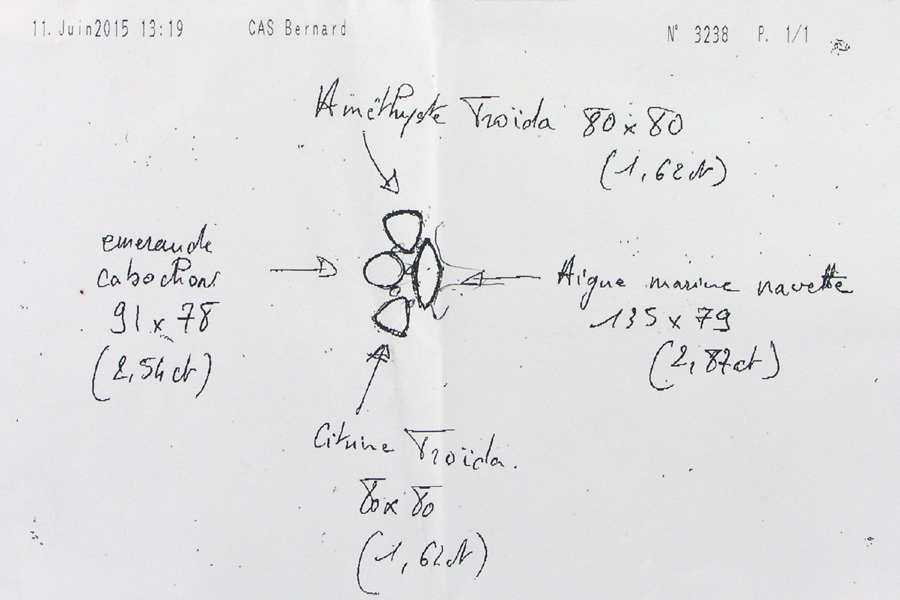 11.Juin2015 13:19 CAS Bernard N° 3238 P. 1/1
Améthyste Troïda 80 x 80
(1,62ct)
emeraude
cabochon
91 x 78
(2,54ct)
Aigue marine navette
135 x 79
(2,87ct)
Citrine Troïda.
80 x 80
(1,62ct)